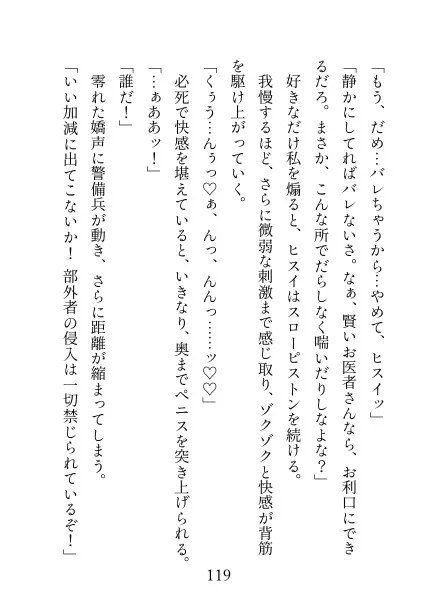 「もう、だめ…バレちゃうから…やめて、ヒスイッ」
「静かにしてればバレないさ。なぁ、賢いお医者さんなら、お利口にでき
るだろ。まさか、こんな所でだらしなく喘いだりしなよな？」
好きなだけ私を煽ると、ヒスイはスローピストンを続ける。
我慢するほど、さらに微弱な刺激まで感じ取り、ゾクゾクと快感が背筋
を駆け上がっていく。
「くぅう…んぅっ♡ぁ、んっ、んんっ……ッ♡♡」
必死で快感を堪えていると、いきなり、奥までペニスを突き上げられる。
「…ぁああッ！」
「誰だ！」
零れた嬌声に警備兵が動き、さらに距離が縮まってしまう。
「いい加減に出てこないか！ 部外者の侵入は一切禁じられているぞ！」
119